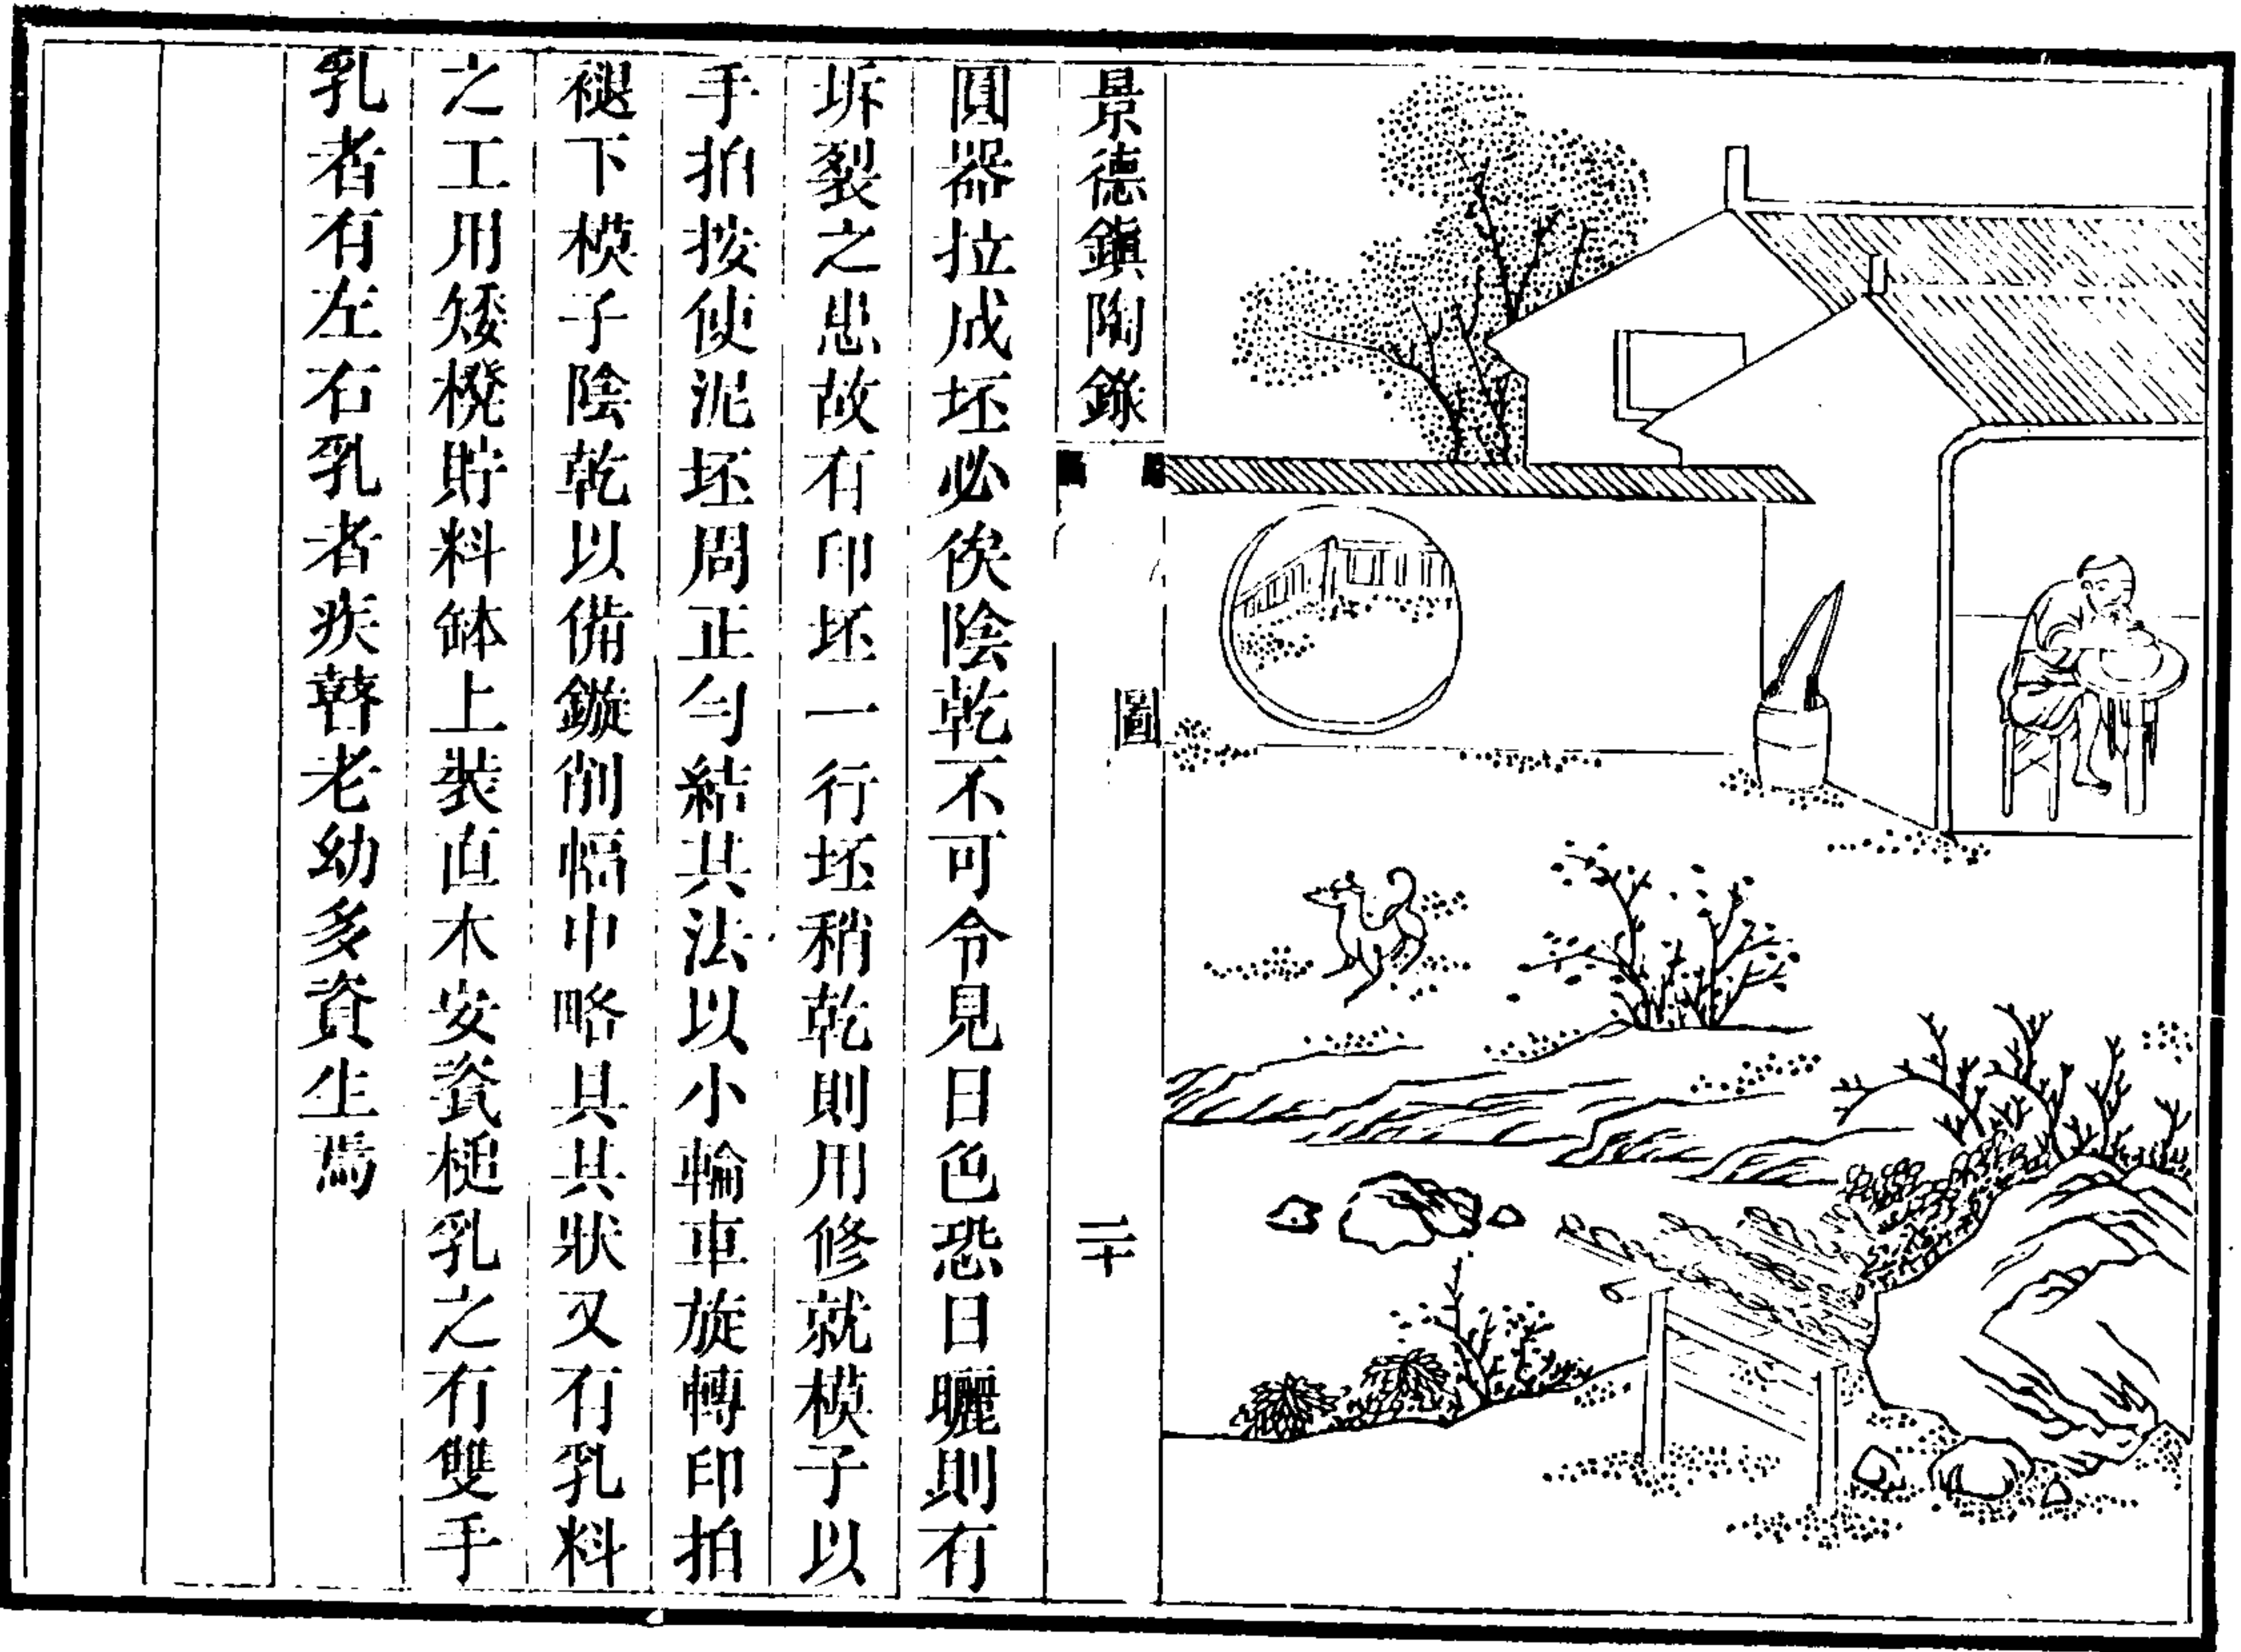 景德鎮陶錄
圖
二十
圓器拉成坯必俟陰乾不可令見日色恐日曬則有
坼裂之患故有印坯一行坯稍乾則用修就模子以
手拍按使泥坯周正勻結其法以小輪車旋轉印拍
褪下模子陰乾以備鏇削幅巾略具其狀又有乳料
之工用矮櫈貯料缽上裝直木安瓷槌乳之有雙手
乳者有左右乳者疾瞽老幼多資生焉